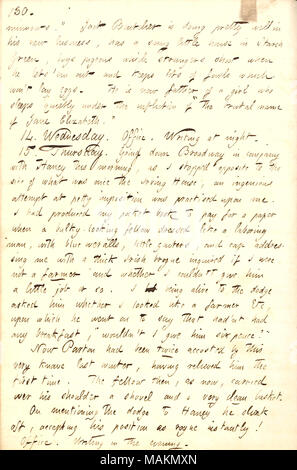 180.
minorats." Jack Butcher is doing pretty well in
his new business, has a snug little house in Starch
Green, buys pigeons while strangers shoot when
he lets 'em out and keeps lots of fowls which
won't lay eggs. He is now father of a girl who
sleeps quietly under the infliction of "the brutal name
of Jane Elizabeth."
14. Wednesday. Office. Writing at night.
15. Thursday. Going down Broadway in company
with Haney this morning, as I stopped opposite to the
site of what was once the Irving House, an ingenious
attempt at petty imposition was practised upon me.
I had produced my pocket book to pay for a paper
when a sulky-looking fellow dressed like a laboring
man, with blue overalls, gaiters, and cap addres-
sing me with a thick Irish brogue inquired if I were
not a farmer and whether I couldn't give him
a little job or so. I being alive to the dodge
asked him whether I looked like a farmer &c,
upon which he went on to say that hadn't had
any breakfast, "wouldn't I give him six pence?"
Now Parton had been twice accosted by this
very knave last winter, having relieved him the
first time. The fellow then, as now, carried
over his shoulder a shovel and a very clean basket.
On mentioning the dodge to Haney he slunk
off, accepting his position as rogue instantly!
Office. Writing in the evening.
alamy
Image ID: MAKMXN
www.alamy.com